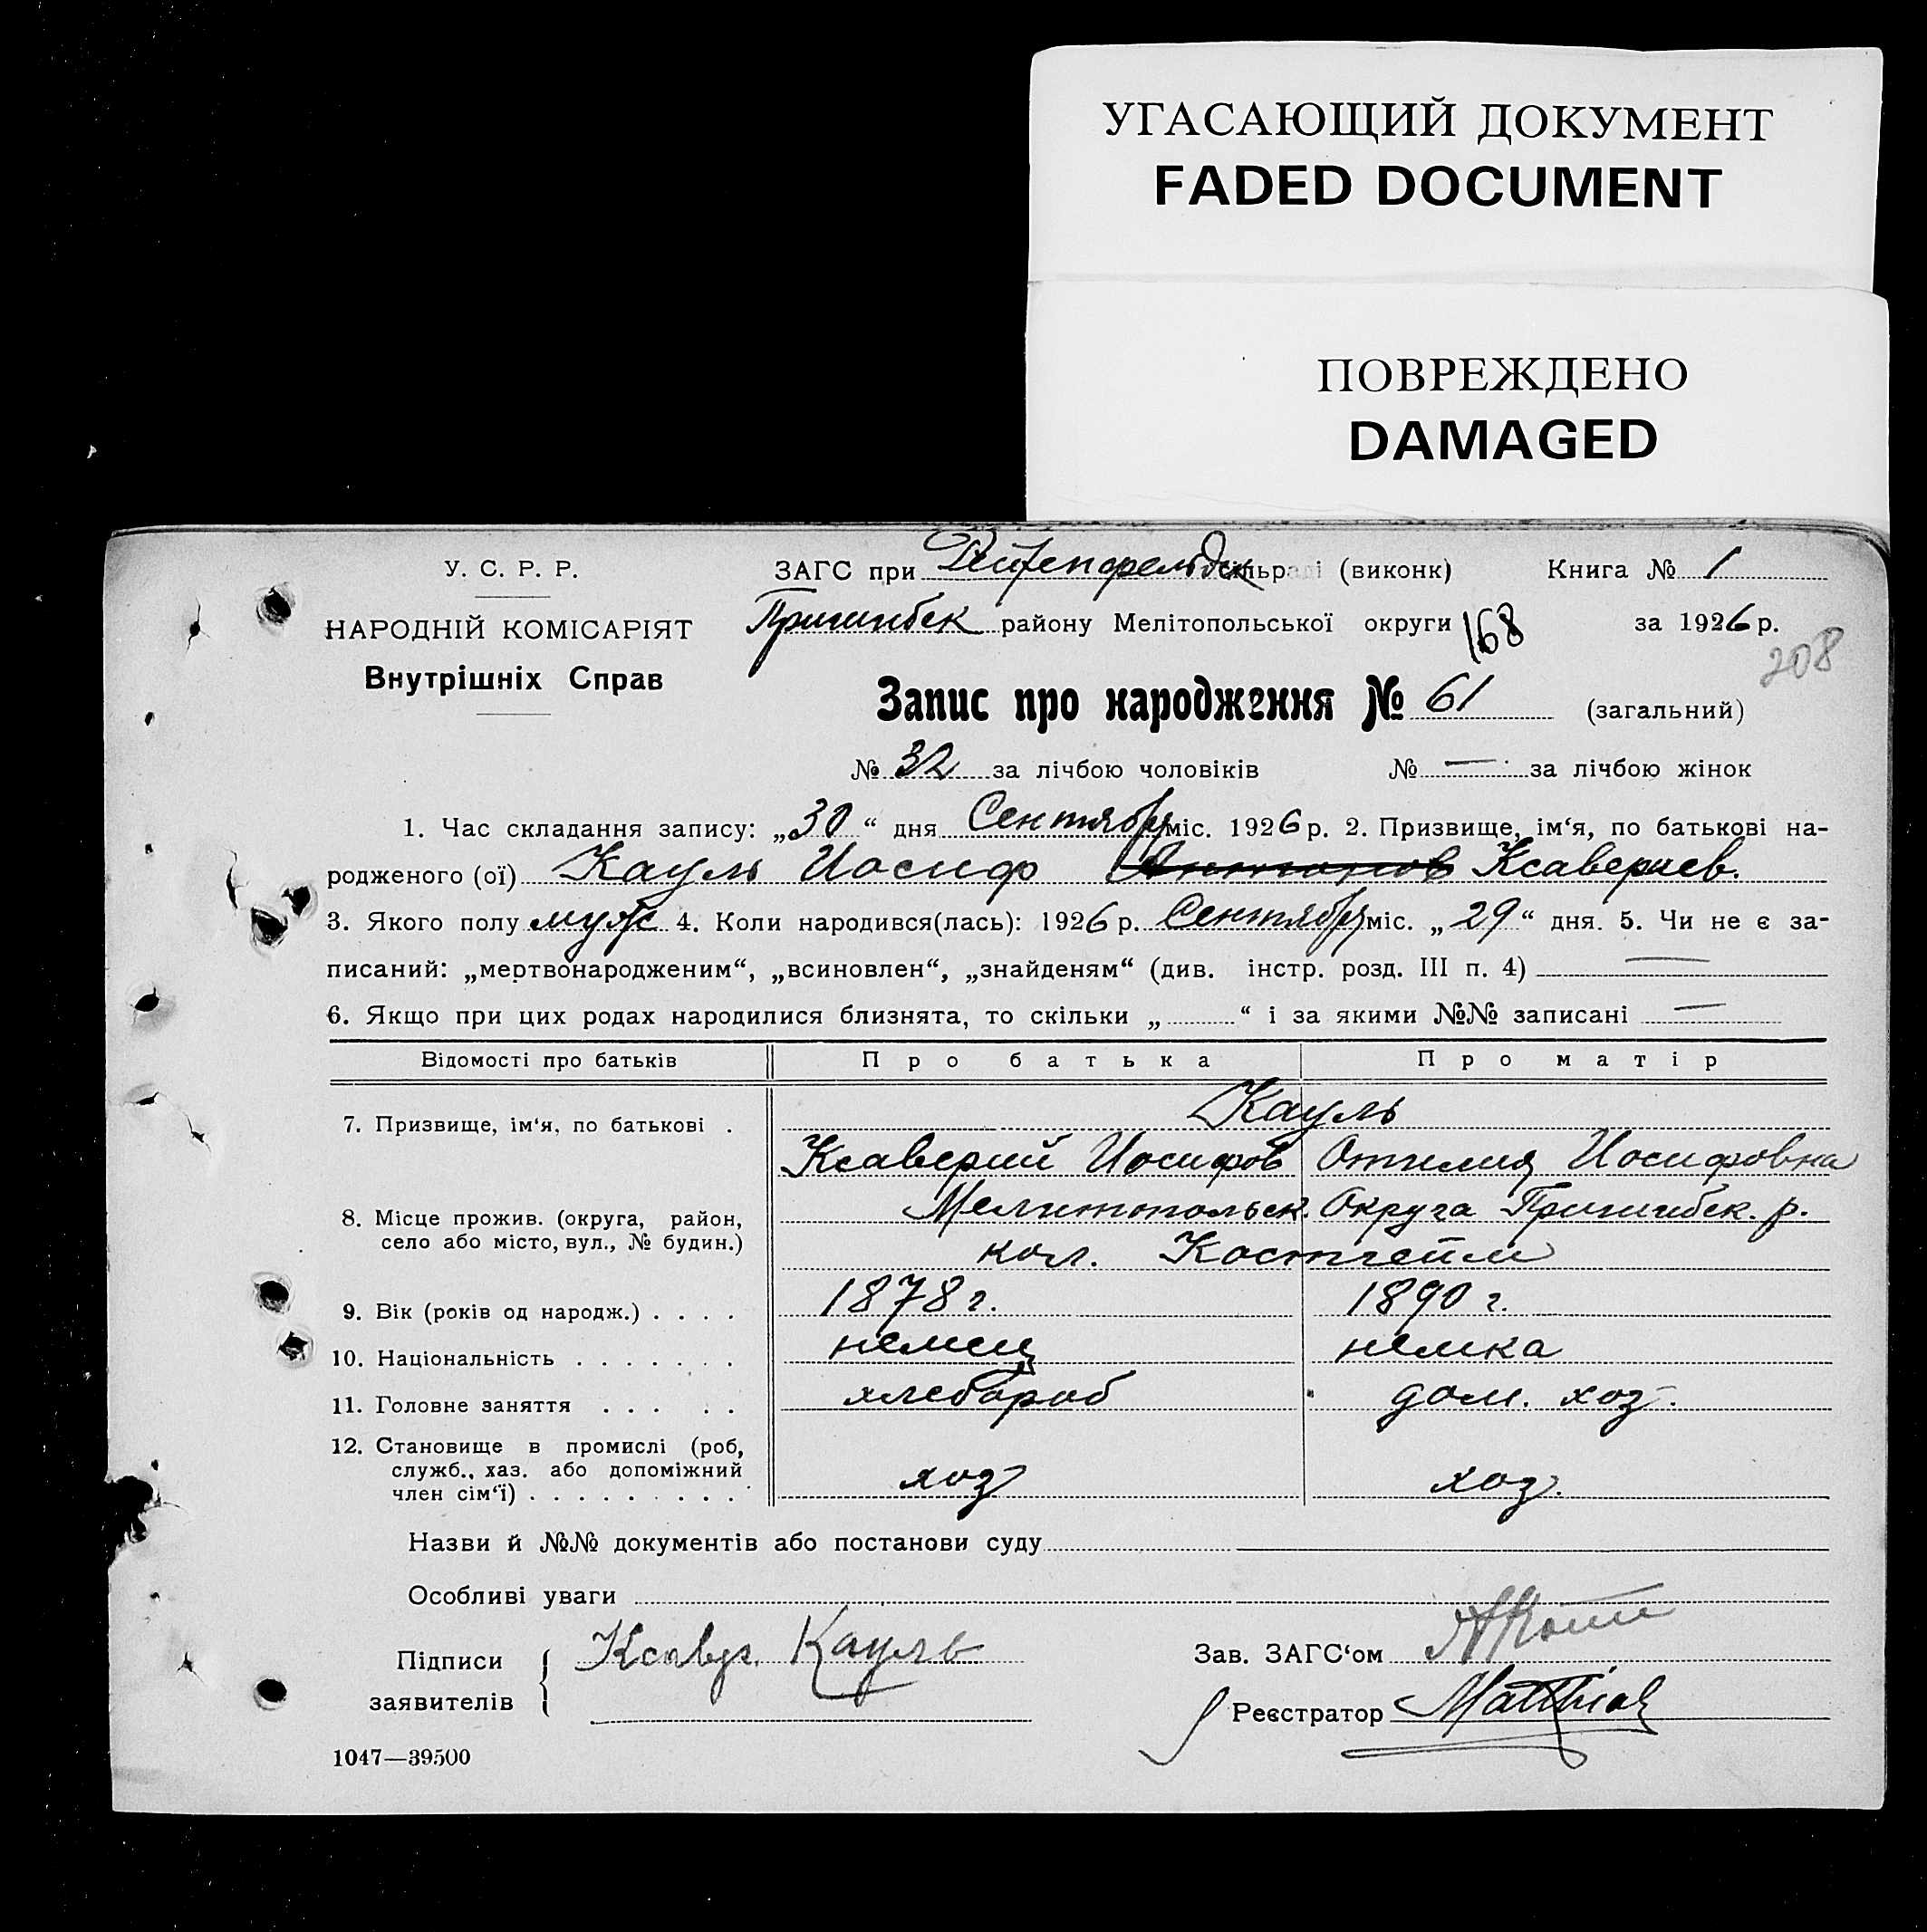 УГАСАЮЩИЙ ДОКУМЕНТ
FADED DOCUMENT
ПОВРЕЖДЕНО
DAMAGED
У. С. Р. Р.
НАРОДНІЙ КОМІСАРІЯТ
Внутрішніх Справ
ЗАГС при сільраді (виконк) Книга № 1
Пришибск району Мелітопольської округи 168 за 1926 р.
208
Запис про народження № 61 (загальний)
№ 32 за лічбою чоловіків № — за лічбою жінок
1. Час складання запису: „30“ дня Сентября міс. 1926 р. 2. Призвище, ім‘я, по батькові на-
родженого (ої) Кауль Иосиф Антонов Ксавериев.
3. Якого полу муж 4. Коли народився(лась): 1926 р. Сентября міс. „29“ дня. 5. Чи не є за-
писаний: „мертвонародженим“, „всиновлен“, „знайденям“ (див. інстр. розд. III п. 4) —
6. Якщо при цих родах народилися близнята, то скільки „ “ і за якими №№ записані —
Відомості про батьків Про батька Про матір
7. Призвище, ім‘я, по батькові . Кауль
Ксаверий Иосифов Отилия Иосифовна
8. Місце прожив. (округа, район, село або місто, вул., № будин.) Мелитопольск. Округа Пришибск. р.
кол. Костгейм
9. Вік (років од народж.) . . . . 1878 г. 1890 г.
10. Національність . . . . . . . немец немка
11. Головне заняття . . . . . хлебороб дом. хоз.
12. Становище в промислі (роб,
служб., хаз. або допоміжний
член сім‘ї) . . . . . . . . . хоз хоз.
Назви й №№ документів або постанови суду
Особливі уваги
Підписи заявителів Кауль
Зав. ЗАГС‘ом
Реєстратор
1047—39500